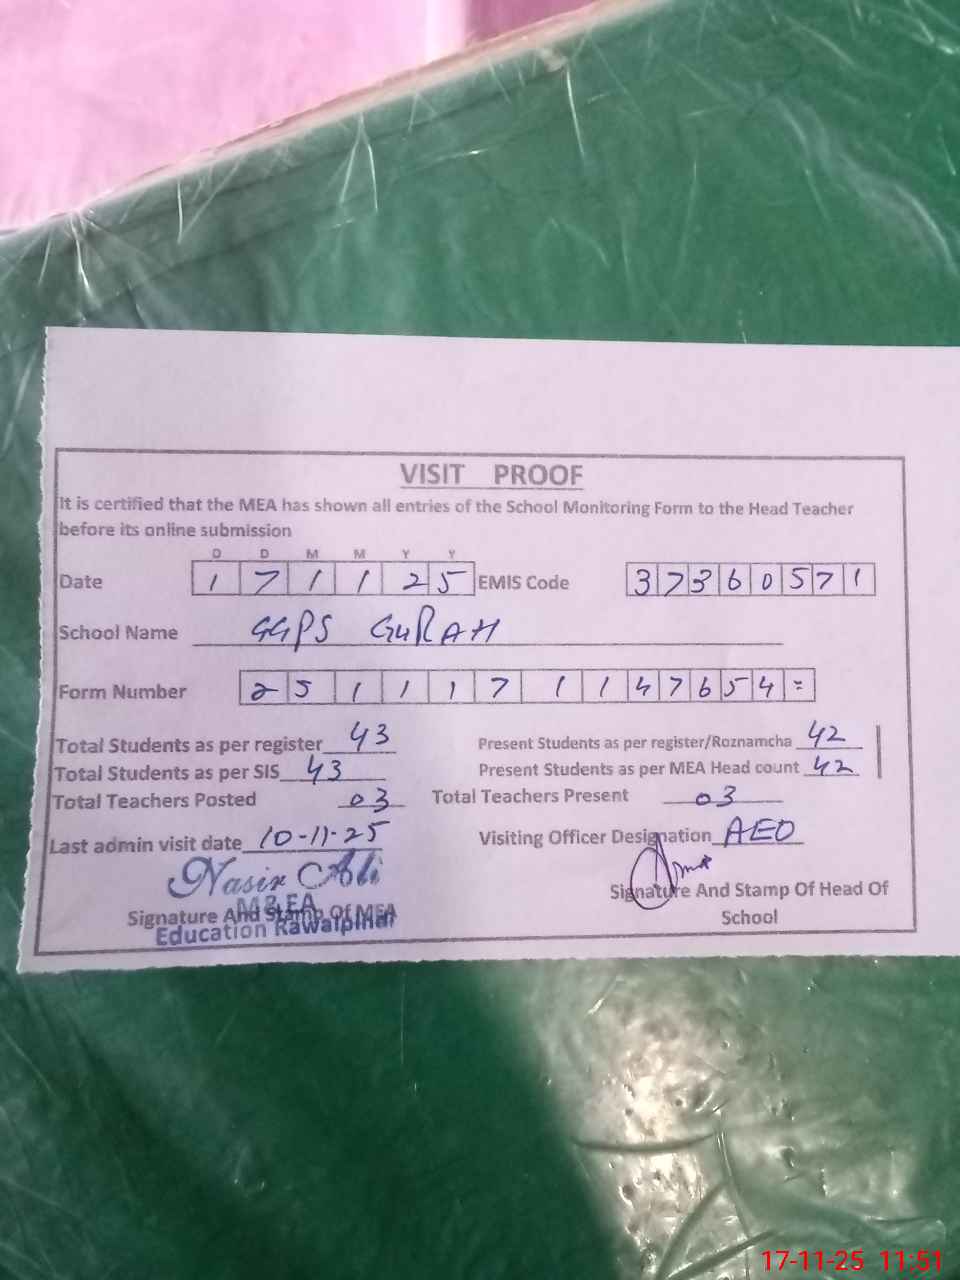 VISIT PROOF
It is certified that the MEA has shown all entries of the School Monitoring Form to the Head Teacher
before its online submission
D D M M Y Y
Date 1 7 1 1 2 5 EMIS Code 3 7 3 6 0 5 7 1
School Name GGPS GURAH
Form Number 2 5 1 1 1 7 1 1 4 7 6 5 4 =
Total Students as per register 43 Present Students as per register/Roznamcha 42
Total Students as per SIS 43 Present Students as per MEA Head count 42
Total Teachers Posted 03 Total Teachers Present 03
Last admin visit date 10-11-25 Visiting Officer Designation AEO
Nasir Ali
M&EA
Signature And Stamp Of MEA Signature And Stamp Of Head Of
School
Education Rawalpindi
17-11-25 11:51